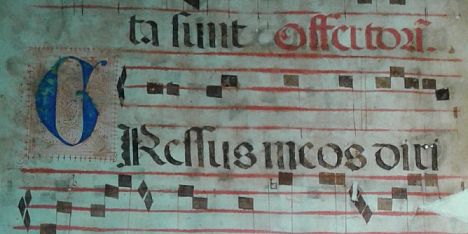 ta sunt Offertoriū.
GRessus meos diri